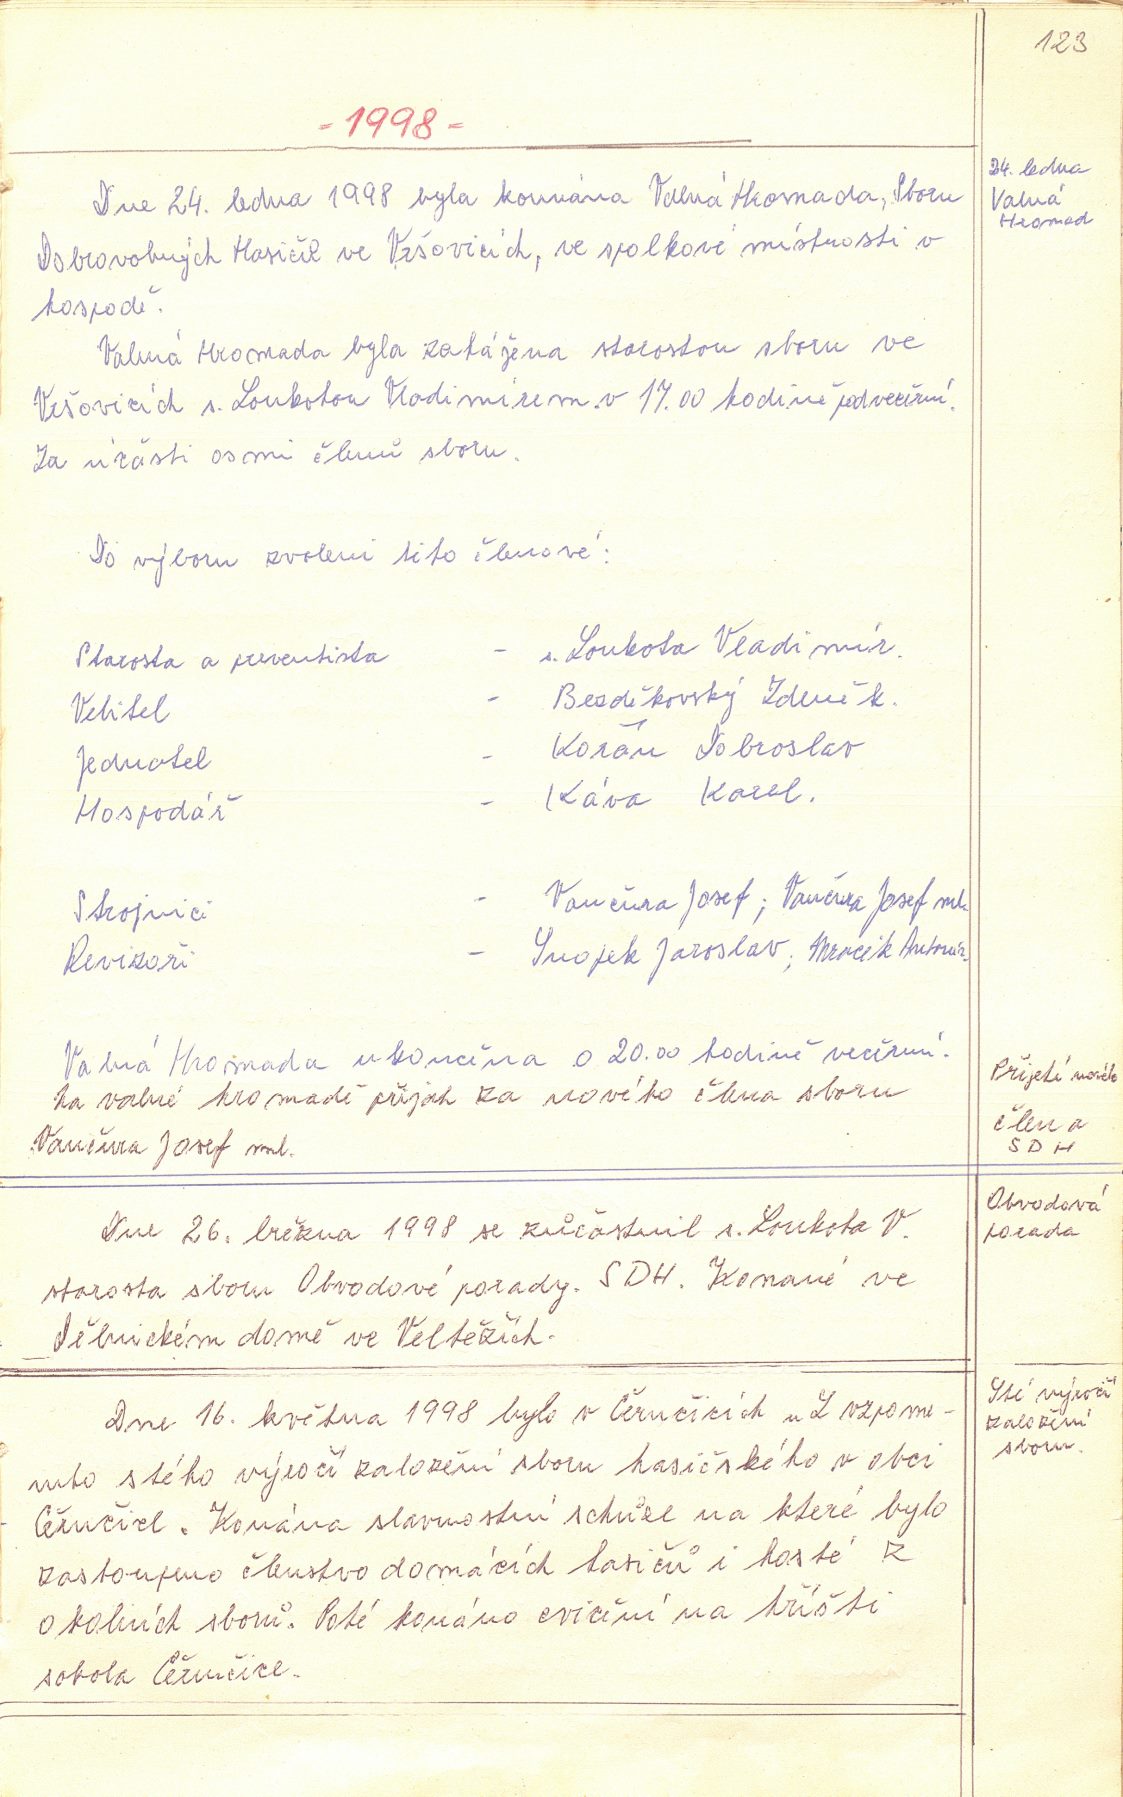 123
- 1998 -
24. ledna
Valná
Hromad
Dne 24. ledna 1998 byla konnána Valná Hromada, Sboru
Dobrovolných Hasičů ve Vršovicích, ve spolkové místnosti v
hospodě.
Valná Hromada byla zahájena starostou sboru ve
Vršovicích s. Loukotou Vladimírem v 17.00 hodině podvečerní.
Za účasti osmi členů sboru.
Do výboru zvoleni tito členové:
Starosta a preventista - s. Loukota Vladimír.
Velitel - Bezděkovský Zdeněk.
Jednatel - Korán Dobroslav
Hospodář - Káva Karel.
Strojníci - Vančura Josef; Vančura Josef ml.
Revizoři - Snopek Jaroslav; Antonín.
Valná Hromada ukončena o 20.00 hodině večerní.
Na valné hromadě přijat za nového člena sboru
Vančura Josef ml.
Přijetí nového
člena
SDH
Dne 26. března 1998 se zůčastnil s. Loukota V.
starosta sboru Obvodové porady. SDH. Konané ve
Dělnickém domě ve Veltěžích.
Obvodová
porada
Dne 16. května 1998 bylo v Černčicích u L vzpome-
nuto stého výročí založení sboru hasičského v obci
Černčice. Konána slavnostní schůze na které bylo
zastoupeno členstvo domácích hasičů i hosté z
okolních sborů. Poté konáno cvičení na hřišti
sokola Černčice.
Sté výročí
založení
sboru.